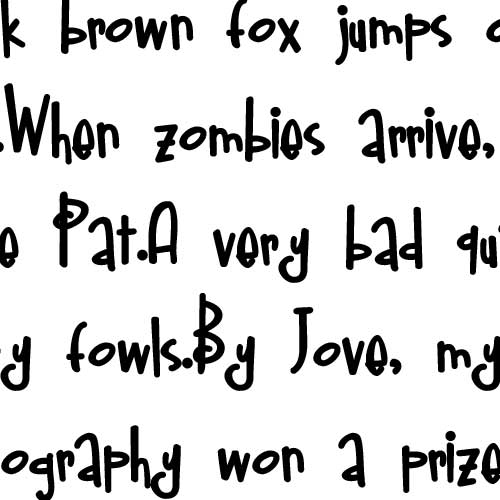 k brown fox jumps
.When zombies arrive,
e Pat.A very bad qui
y fowls.By Jove, my
ography won a prize